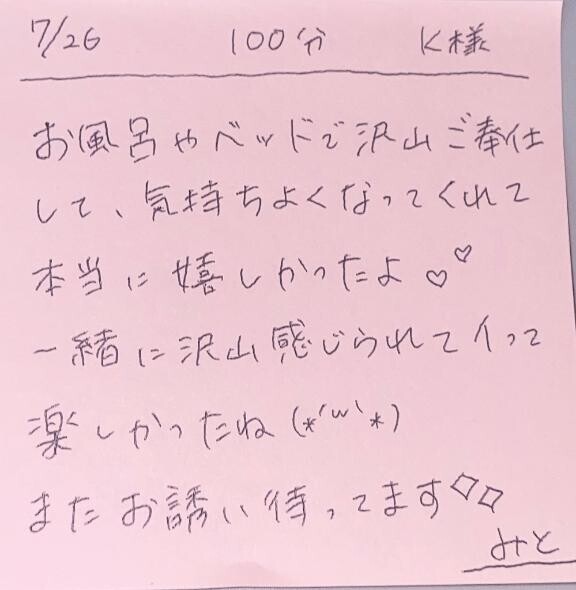 7/26 100分 K様
お風呂やベッドで沢山ご奉仕
して、気持ちよくなってくれて
本当に嬉しかったよ♡♡
一緒に沢山感じられてイって
楽しかったね(*´ω`*)
またお誘い待ってます◇◇
みと